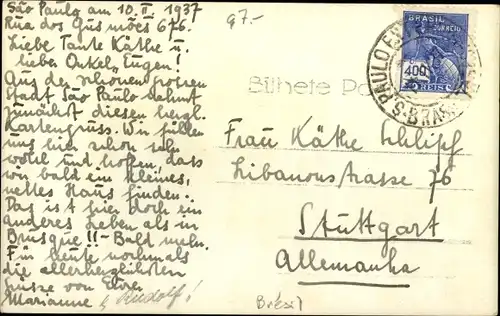 São Paulo am 10. II. 1937
Rua dos Gusmões 676.
Liebe Tante Käthe u.
lieber Onkel Eugen!
Aus der schönen grossen
Stadt São Paulo nehmt
zunächst diesen herzl.
Kartengruss. Wir fühlen
uns hier schon sehr
wohl und hoffen, dass
wir bald ein kleines,
nettes Haus finden.
Das ist hier doch ein
anderes Leben als in
Brusque!! - Bald mehr.
Für heute nochmals
die allerherzlichsten
Grüsse von Eurer
Marianne u. Rudolf!
97.-
Bilhete Po
BRASIL
CORREIO
400
REIS
S. PAULO
S. BRASIL
Frau Käthe Schlipf
Libanonstrasse 76
Stuttgart
Allemanha
Brésil